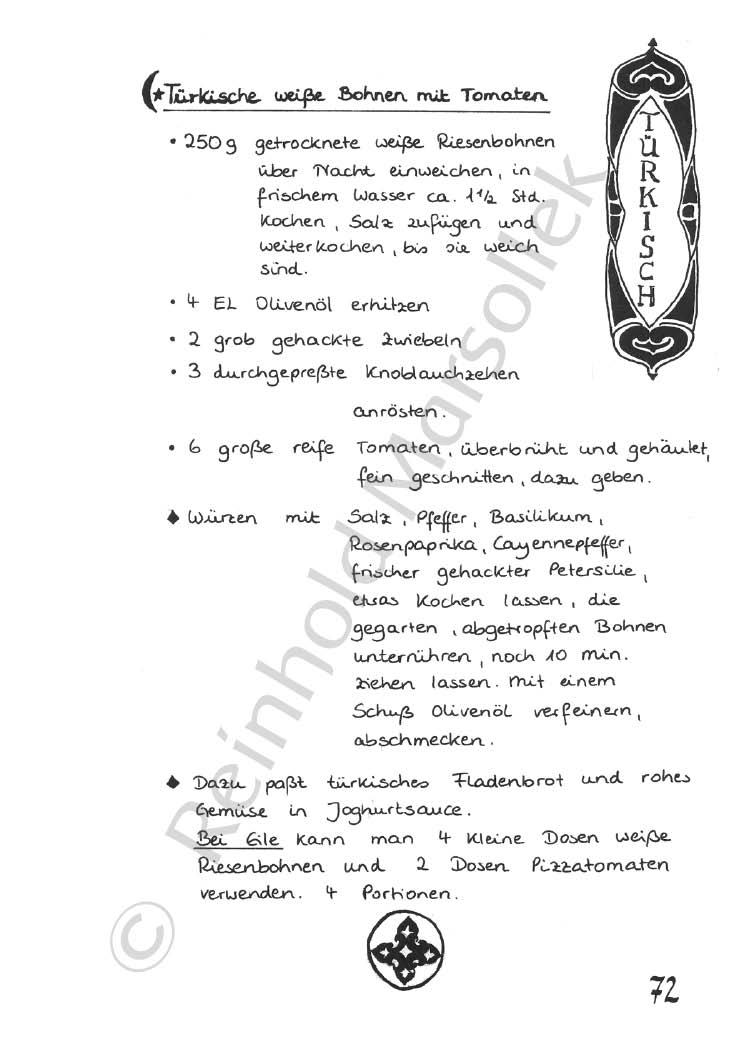 Türkische weiße Bohnen mit Tomaten
TÜRKISCH
• 250 g getrocknete weiße Riesenbohnen
über Nacht einweichen, in
frischem Wasser ca. 1 1/2 Std.
kochen, Salz zufügen und
weiterkochen, bis sie weich
sind.
• 4 EL Olivenöl erhitzen
• 2 grob gehackte Zwiebeln
• 3 durchgepreßte Knoblauchzehen
anrösten.
• 6 große reife Tomaten, überbrüht und gehäutet,
fein geschnitten, dazu geben.
◆ Würzen mit Salz, Pfeffer, Basilikum,
Rosenpaprika, Cayennepfeffer,
frischer gehackter Petersilie,
etwas kochen lassen, die
gegarten, abgetropften Bohnen
unterrühren, noch 10 min.
ziehen lassen. Mit einem
Schuß Olivenöl verfeinern,
abschmecken.
◆ Dazu paßt türkisches Fladenbrot und rohes
Gemüse in Joghurtsauce.
Bei Eile kann man 4 kleine Dosen weiße
Riesenbohnen und 2 Dosen Pizzatomaten
verwenden. 4 Portionen.
72
© Reinhold Marsollek